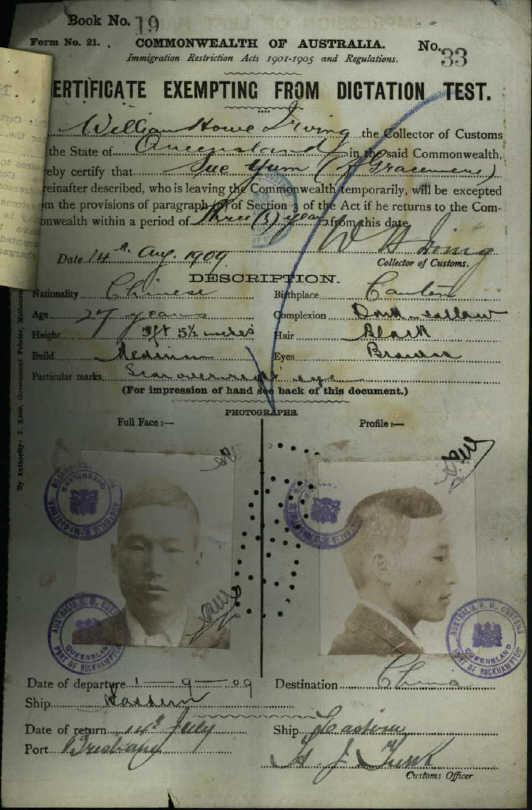 Book No. 19
Form No. 21.
COMMONWEALTH OF AUSTRALIA.
No. 33
Immigration Restriction Acts 1901-1905 and Regulations.
ERTIFICATE EXEMPTING FROM DICTATION TEST.
William Howe Irving the Collector of Customs
the State of Queensland in the said Commonwealth,
reby certify that See Yum (of Gracemere)
reinafter described, who is leaving the Commonwealth temporarily, will be excepted
m the provisions of paragraph of Section 3 of the Act if he returns to the Com-
onwealth within a period of three (3) years from this date.
W H Irving
Date 14th Aug. 1909
Collector of Customs.
DESCRIPTION.
Nationality Chinese
Birthplace Canton
Age 27 years
Complexion Dark sallow
Height 5ft 5½ inches
Hair Black
Build Medium
Eyes Brown
Particular marks Scar over right eye
(For impression of hand see back of this document.)
PHOTOGRAPHS.
Full Face :—
Profile :—
QUEENSLAND
PORT OF ROCKHAMPTON
Date of departure 1-9-09
Destination China
Ship Eastern
Date of return 14th July
Ship Eastern
Port Brisbane
Customs Officer
By Authority: J. Kemp, Government Printer, Melbourne